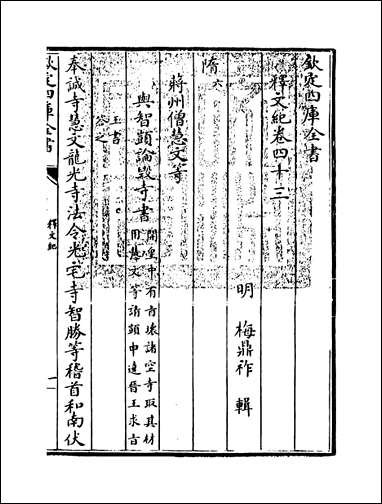 欽定四庫全書
釋文紀卷四十三
明 梅鼎祚 輯
隋六
蔣州僧慧文等
與智顗論毀寺書開皇中有吉壊諸空寺取其材用慧文等請顗申達晉王求吉王書答之
奉誠寺慧文龍光寺法令光宅寺智勝等稽首和南伏
欽定四庫全書
釋文紀
一